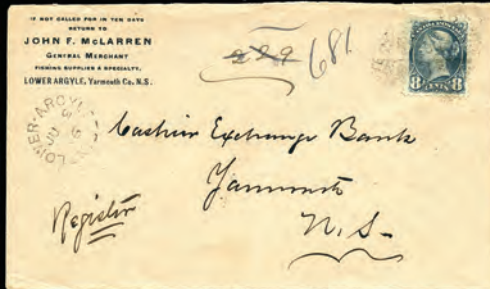 IF NOT CALLED FOR IN TEN DAYS
RETURN TO
JOHN F. McLARREN
GENERAL MERCHANT
FISHING SUPPLIES A SPECIALTY.
LOWER ARGYLE, Yarmouth Co. N.S.
229 681
8 CENTS 8
LOWER-ARGYLE
JU 6
Cashier Exchange Bank
Yarmouth
N.S.
Register